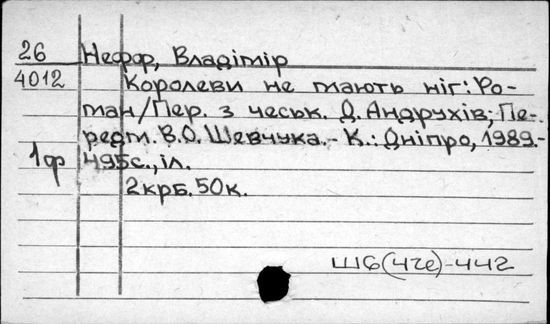 26 Нефф, Владімір
4012 Королеви не мають ніг: Ро-
ман/Пер. з чеськ. Д. Андрухів; Пе-
редм. В.О. Шевчука. - К.: Дніпро, 1989.-
1ф 495с., іл.
2крб. 50к.
Ш6(4че)-44г